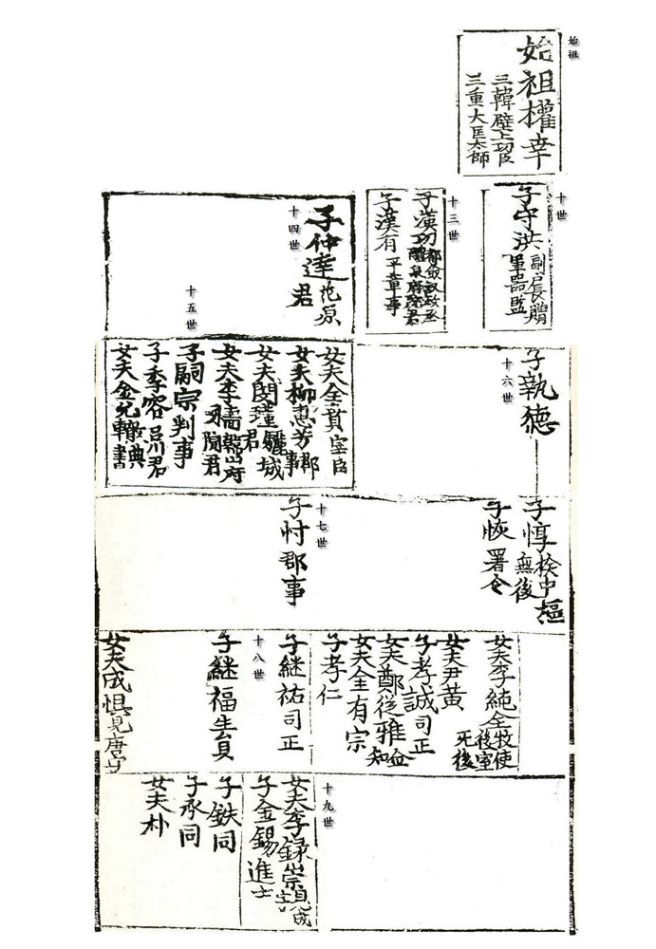 始祖
始祖權幸
三韓壁上功臣
三重大匡太師
十世
子守洪
副戶長
軍器監
十三世
子漢功
子漢有 平章事
十四世
子仲達 花原君
十五世
女夫全賁宰臣
女夫柳惠芳郡事
女夫閔瑾驪城君
女夫李
子嗣宗判事
子季容吕川君
女夫金允轍典書
十六世
子執德
子惇 檢中樞 無後
子恢 署令
十七世
子忖郡事
女夫李純全牧使
後室
女夫尹黃 死後
子孝誠司正
女夫鄭從雅僉知
女夫金有宗
子孝仁
子継祐司正
十八世
子継福生員
女夫成惧見唐守
十九世
女夫李録崇見成
子金錫進士
子鉄同
子承同
女夫朴